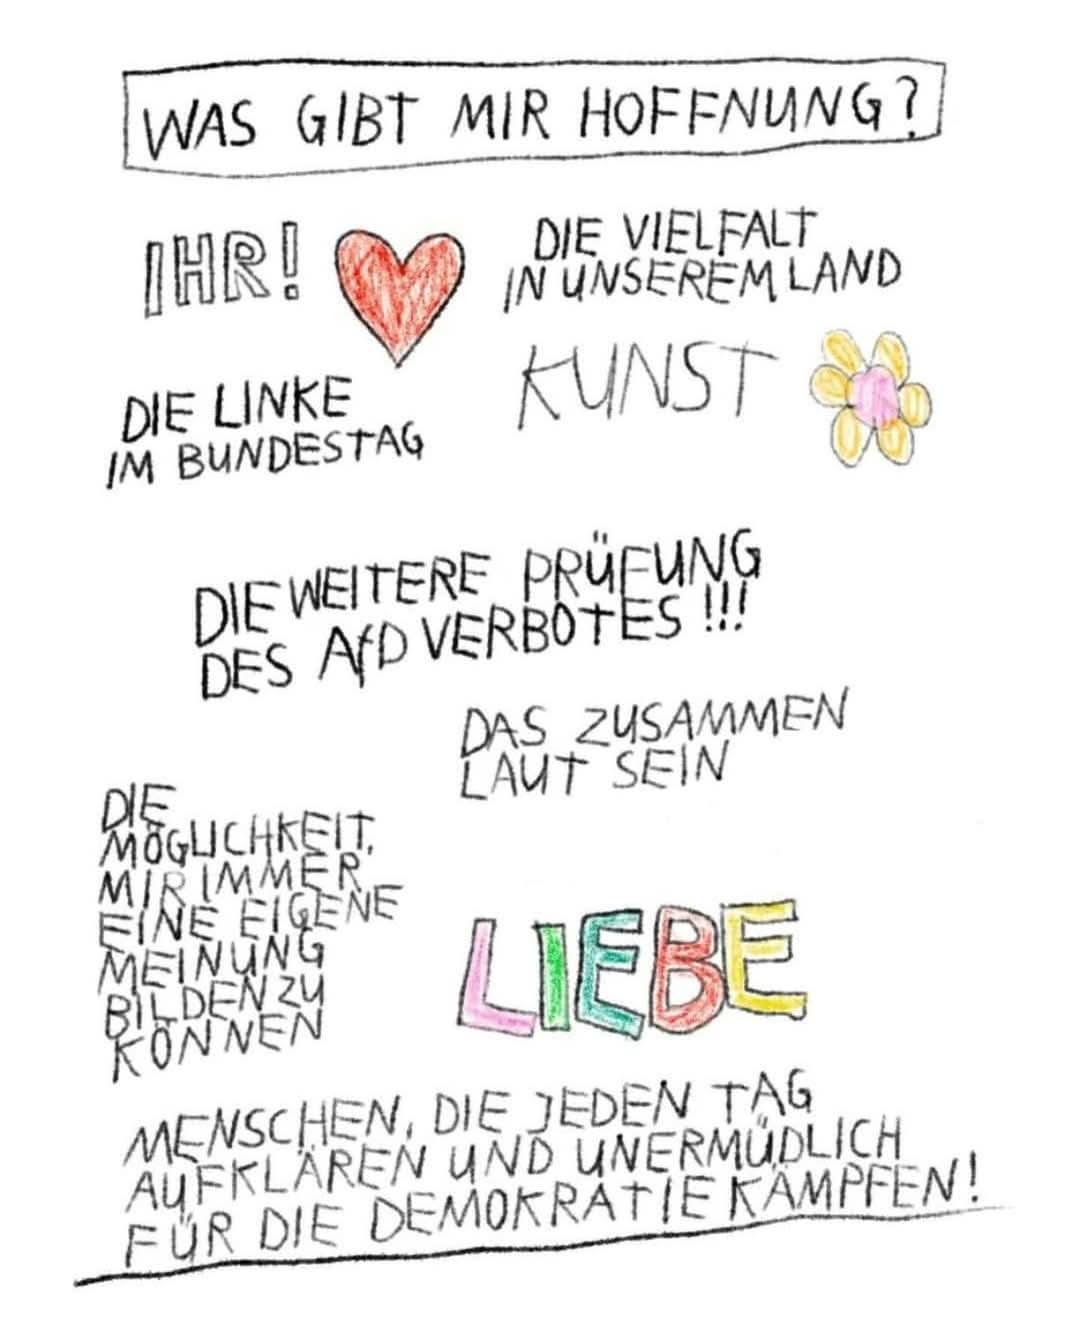 WAS GIBT MIR HOFFNUNG?
IHR!
DIE VIELFALT
IN UNSEREM LAND
KUNST
DIE LINKE
IM BUNDESTAG
DIE WEITERE PRÜFUNG
DES AfD VERBOTES !!!
DAS ZUSAMMEN
LAUT SEIN
DIE
MÖGLICHKEIT,
MIR IMMER
EINE EIGENE
MEINUNG
BILDEN ZU
KÖNNEN
LIEBE
MENSCHEN, DIE JEDEN TAG
AUFKLÄREN UND UNERMÜDLICH
FÜR DIE DEMOKRATIE KÄMPFEN!